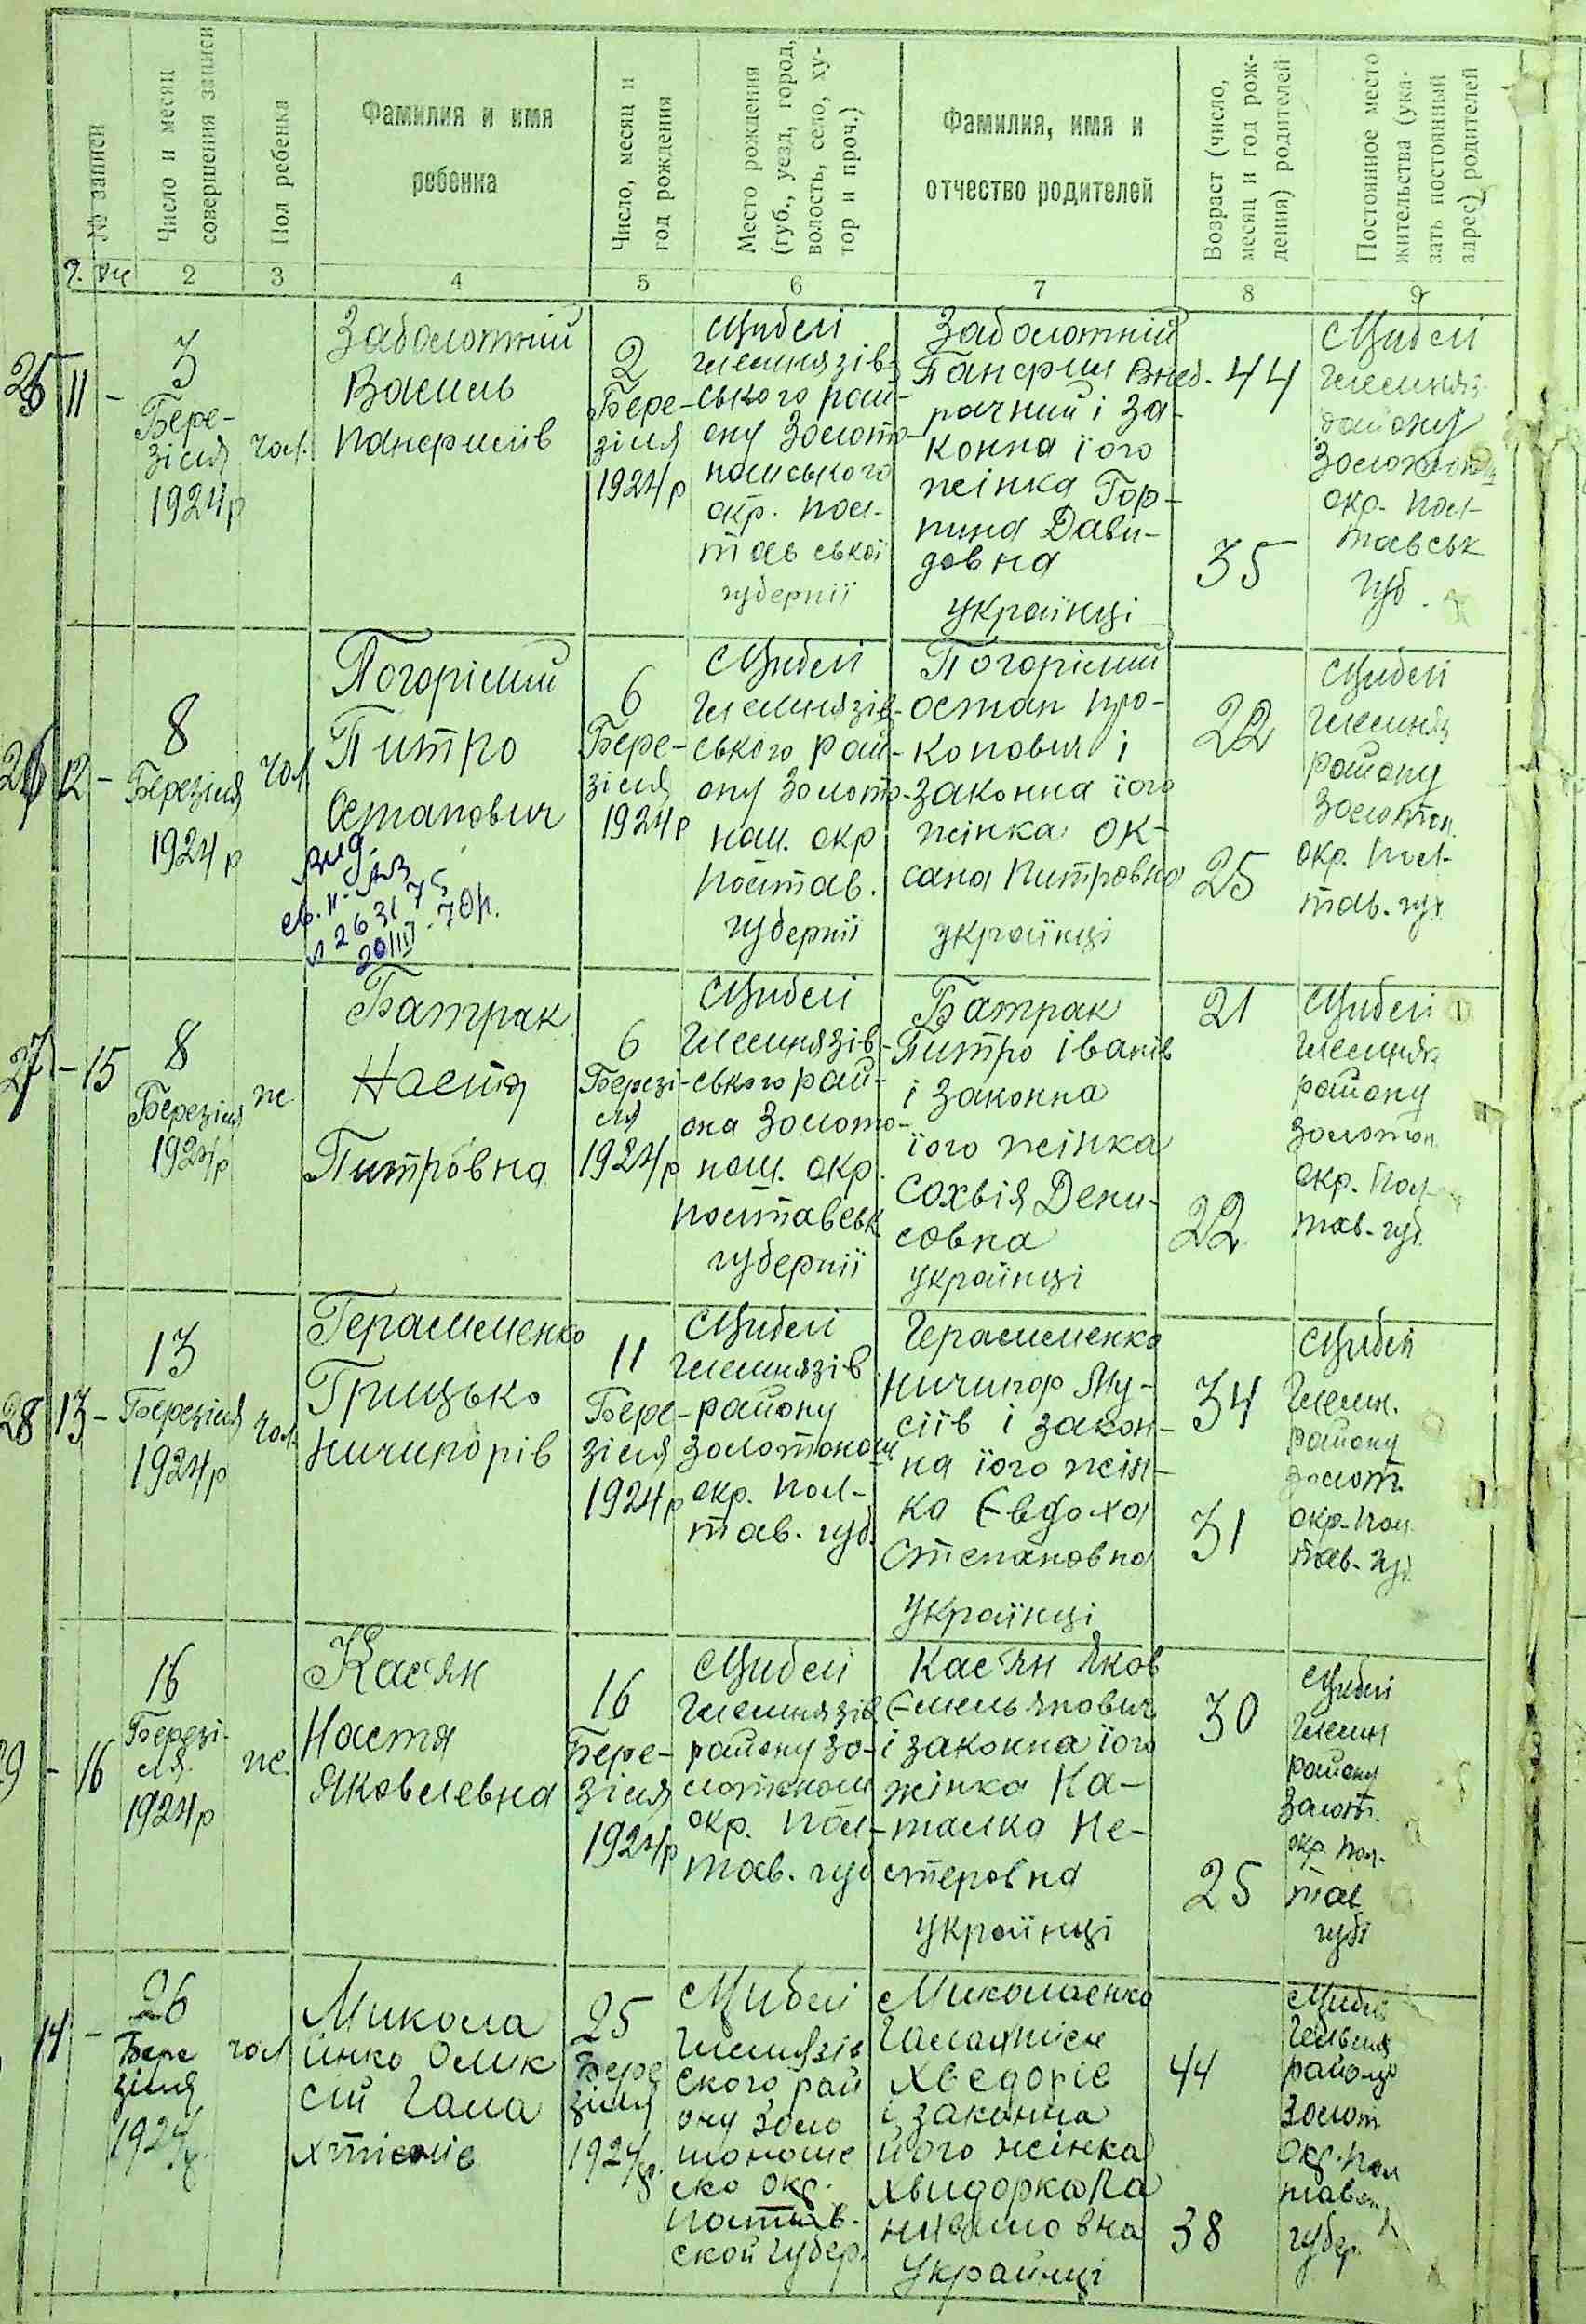 № записи
Число и месяц
совершения записи
Пол ребенка
Фамилия и имя
ребенка
Число, месяц и
год рождения
Место рождения
(губ., уезд, город,
волость, село, ху-
тор и проч.)
Фамилия, имя и
отчество родителей
Возраст (число,
месяц и год рож-
дения) родителей
Постоянное место
жительства (ука-
зать постоянный
адрес) родителей
2
3
4
5
6
7
8
9
25
11 -
3
Бере-
зіля
1924р
чол.
Заболотній
Василь
Панфилів
2
Бере-
зіля
1924р
Циблі
Гелмязів-
ського рай-
ону Золото-
ношського
окр. Пол-
тавської
губернії
Заболотній
Панфил
рачний і за-
конна їого
жінка Гор-
пина Дави-
довна
українці
44
35
Циблі
Гелмяз.
району
Золотонош
окр. Пол-
тавськ
губ.
26
12 -
8
Березіля
1924р
чол
Погорілий
Питро
Остапович
вид.
св. II-
№ 263175
20/III-70р.
6
Бере-
зіля
1924р
Циблі
Гелмязів-
ського рай-
ону Золото-
нош. окр
Полтав.
губернії
Погорілий
Остап Про-
копович і
законна їого
жінка Ок-
сана Питровна
українці
22
25
Циблі
Гелмяз
району
Золотон.
окр. Пол-
тав. губ
27
- 15
8
Березіля
1924р
же
Батрак
Настя
Питровна
6
Березі-
ля
1924р
Циблі
Гелмязів-
ського рай-
она Золото-
нош. окр.
Полтавськ
губернії
Батрак
Питро Іванів
і законна
їого жінка
Сохвія Дени-
совна
українці
21
22
Циблі
Гелмяз
району
Золотон.
окр. Пол-
тав. губ.
28
13 -
13
Березіля
1924р
чол.
Герасименко
Грицько
Ничипорів
11
Бере-
зіля
1924р
Циблі
Гелмязів
району
Золотонош
окр. Пол-
тав. губ.
Герасименко
Ничипор Му-
сіїв і закон-
на їого жін-
ка Євдоха
Степановна
українці
34
31
Циблі
Гелм.
району
Золот.
окр. Пол.
тав. губ
29
- 16
16
Березі-
ля
1924р
же.
Кас'ян
Настя
Яковлевна
16
Бере-
зіля
1924р
Циблі
Гелмязів
району Зо-
лотонош
окр. Пол-
тав. губ
Кас'ян Яков
Ємельянович
і законна їого
жінка На-
талка Не-
стеровна
українці
30
25
Циблі
Гелмя
району
Золот.
окр. Пол-
тав
губ
14 -
26
Бере
зіля
1924р.
чол
Микола
йнко Олик
сій Гала
хтіонів
25
Бере
зіля
1924р.
Циблі
Гелмязів
ского рай
ону Золо
тоноше
ско окр.
Полтав.
ской губер.
Миколаенко
Галахтіон
Хведорів
і законна
його жінка
Хвидорка Па
українці
44
38
Циблі
району
Золот
Окр. Пол
тавск
губер.